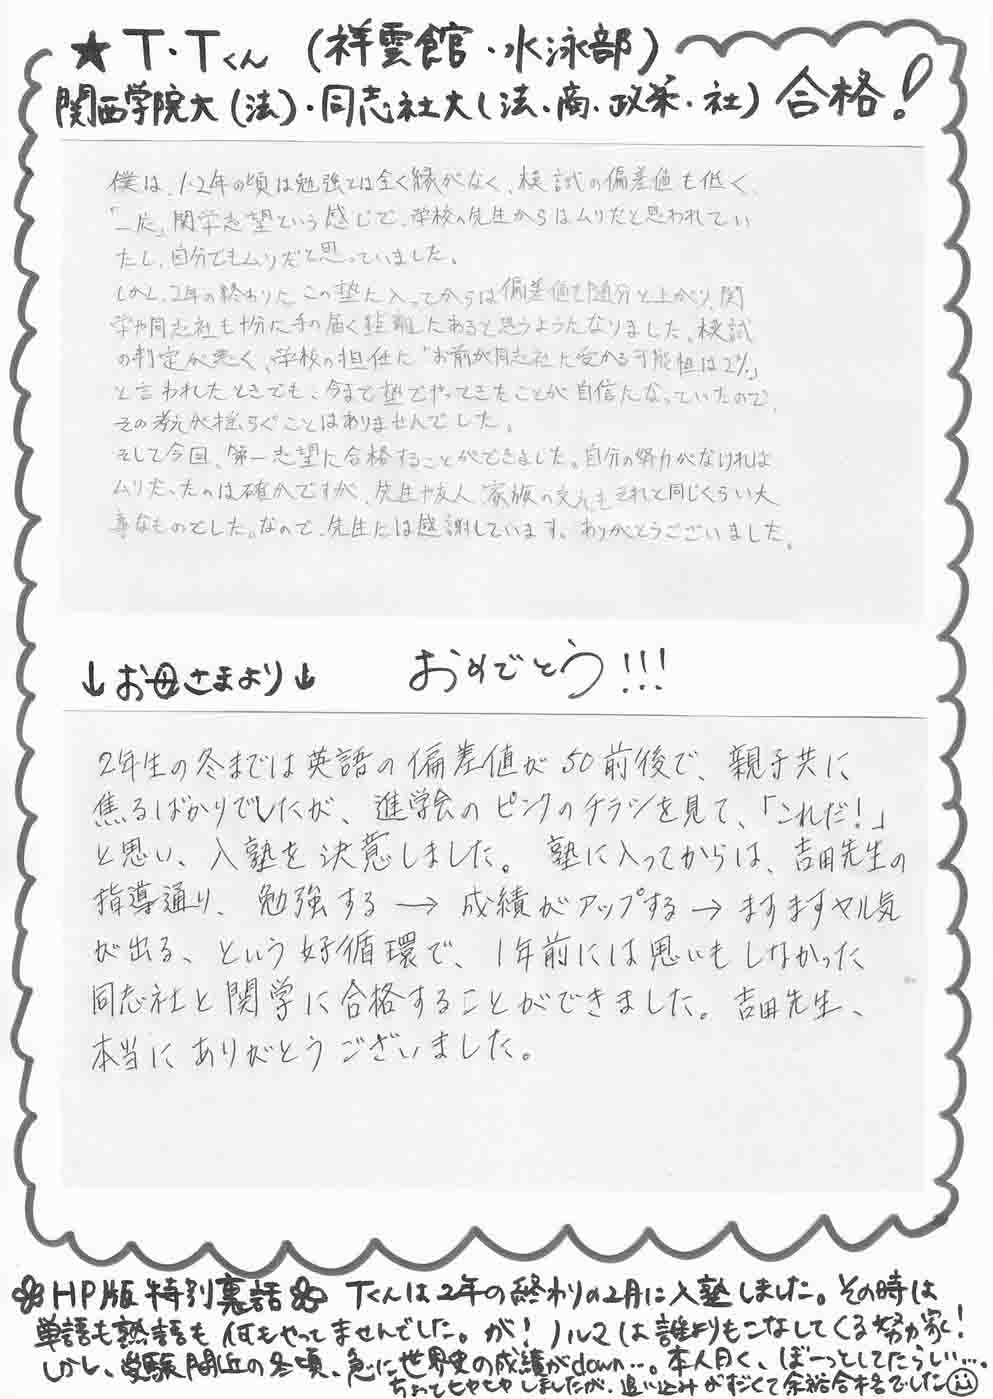 ★T・Tくん (祥雲館・水泳部)
関西学院大(法)・同志社大(法・商・政策・社) 合格!
僕は、1・2年の頃は勉強とは全く縁がなく、模試の偏差値も低く、
「一応」関学志望という感じで、学校の先生からはムリだと思われてい
たし、自分でもムリだと思っていました。
しかし、2年の終わりに、この塾に入ってからは偏差値も随分と上がり、関
学や同志社も十分に手の届く距離にあると思うようになりました。模試
の判定が悪く、学校の担任に「お前が同志社に受かる可能性は2%」
と言われたときでも、今まで塾でやってきたことが自信になっていたので、
その考えが揺らぐことはありませんでした。
そして今回、第一志望に合格することができました。自分の努力がなければ
ムリだったのは確かですが、先生や友人、家族の支えもそれと同じくらい大
事なものでした。なので、先生には感謝しています。ありがとうございました。
↓お母さまより↓ おめでとう!!!
2年生の冬までは英語の偏差値が50前後で、親子共に
焦るばかりでしたが、進学会のピンクのチラシを見て、「これだ!」
と思い、入塾を決意しました。塾に入ってからは、吉田先生の
指導通り、勉強する→成績がアップする→ますますヤル気
が出る、という好循環で、1年前には思いもしなかった
同志社と関学に合格することができました。吉田先生、
本当にありがとうございました。
HP版特別裏話 Tくんは2年の終わりの2月に入塾しました。その時は
単語も熟語も何もやってませんでした。が!ノルマは誰よりもこなしてくる努力家!
しかし、受験間近の冬頃、急に世界史の成績がdown…。本人曰く、ぼーっとしてたらしい…。
ちょっとヒヤヒヤしましたが、追い込みがすごくて余裕合格でした